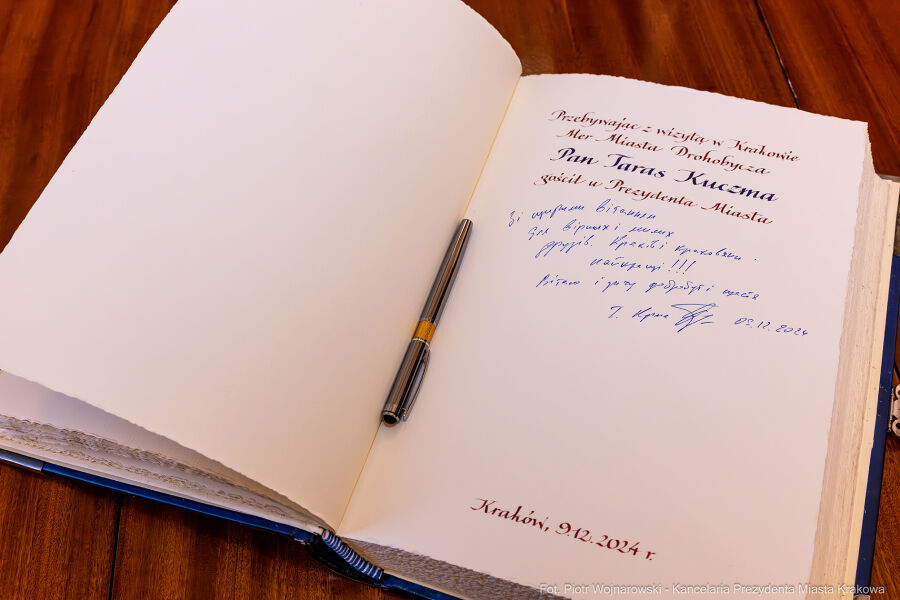 Przebywając z wizytą w Krakowie
Mer Miasta Drohobycza
Pan Taras Kuczma
gościł u Prezydenta Miasta
Зі щирими вітаннями
для вірних і милих
друзів. Краків і краковяни
найкращі!!!
Вітаю і зичу добробуту і щастя
Т. Кучма 09.12.2024
Kraków, 9.12.2024 r.
Fot. Piotr Wojnarowski - Kancelaria Prezydenta Miasta Krakowa